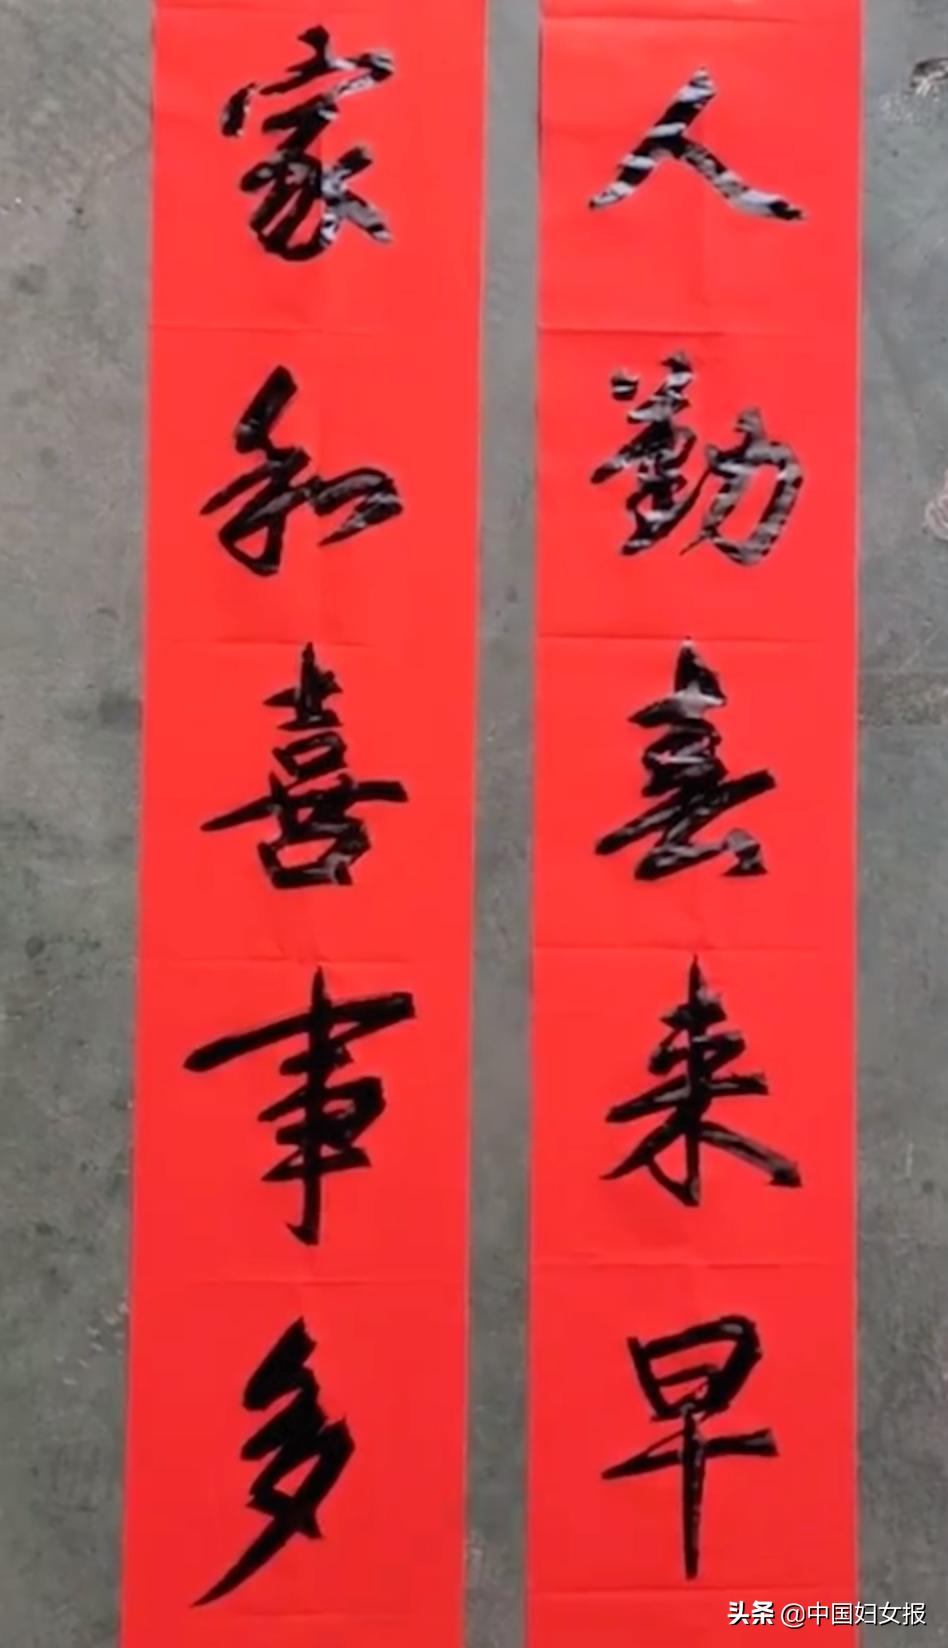 人勤喜来早
家和喜事多
头条 @中国妇女报